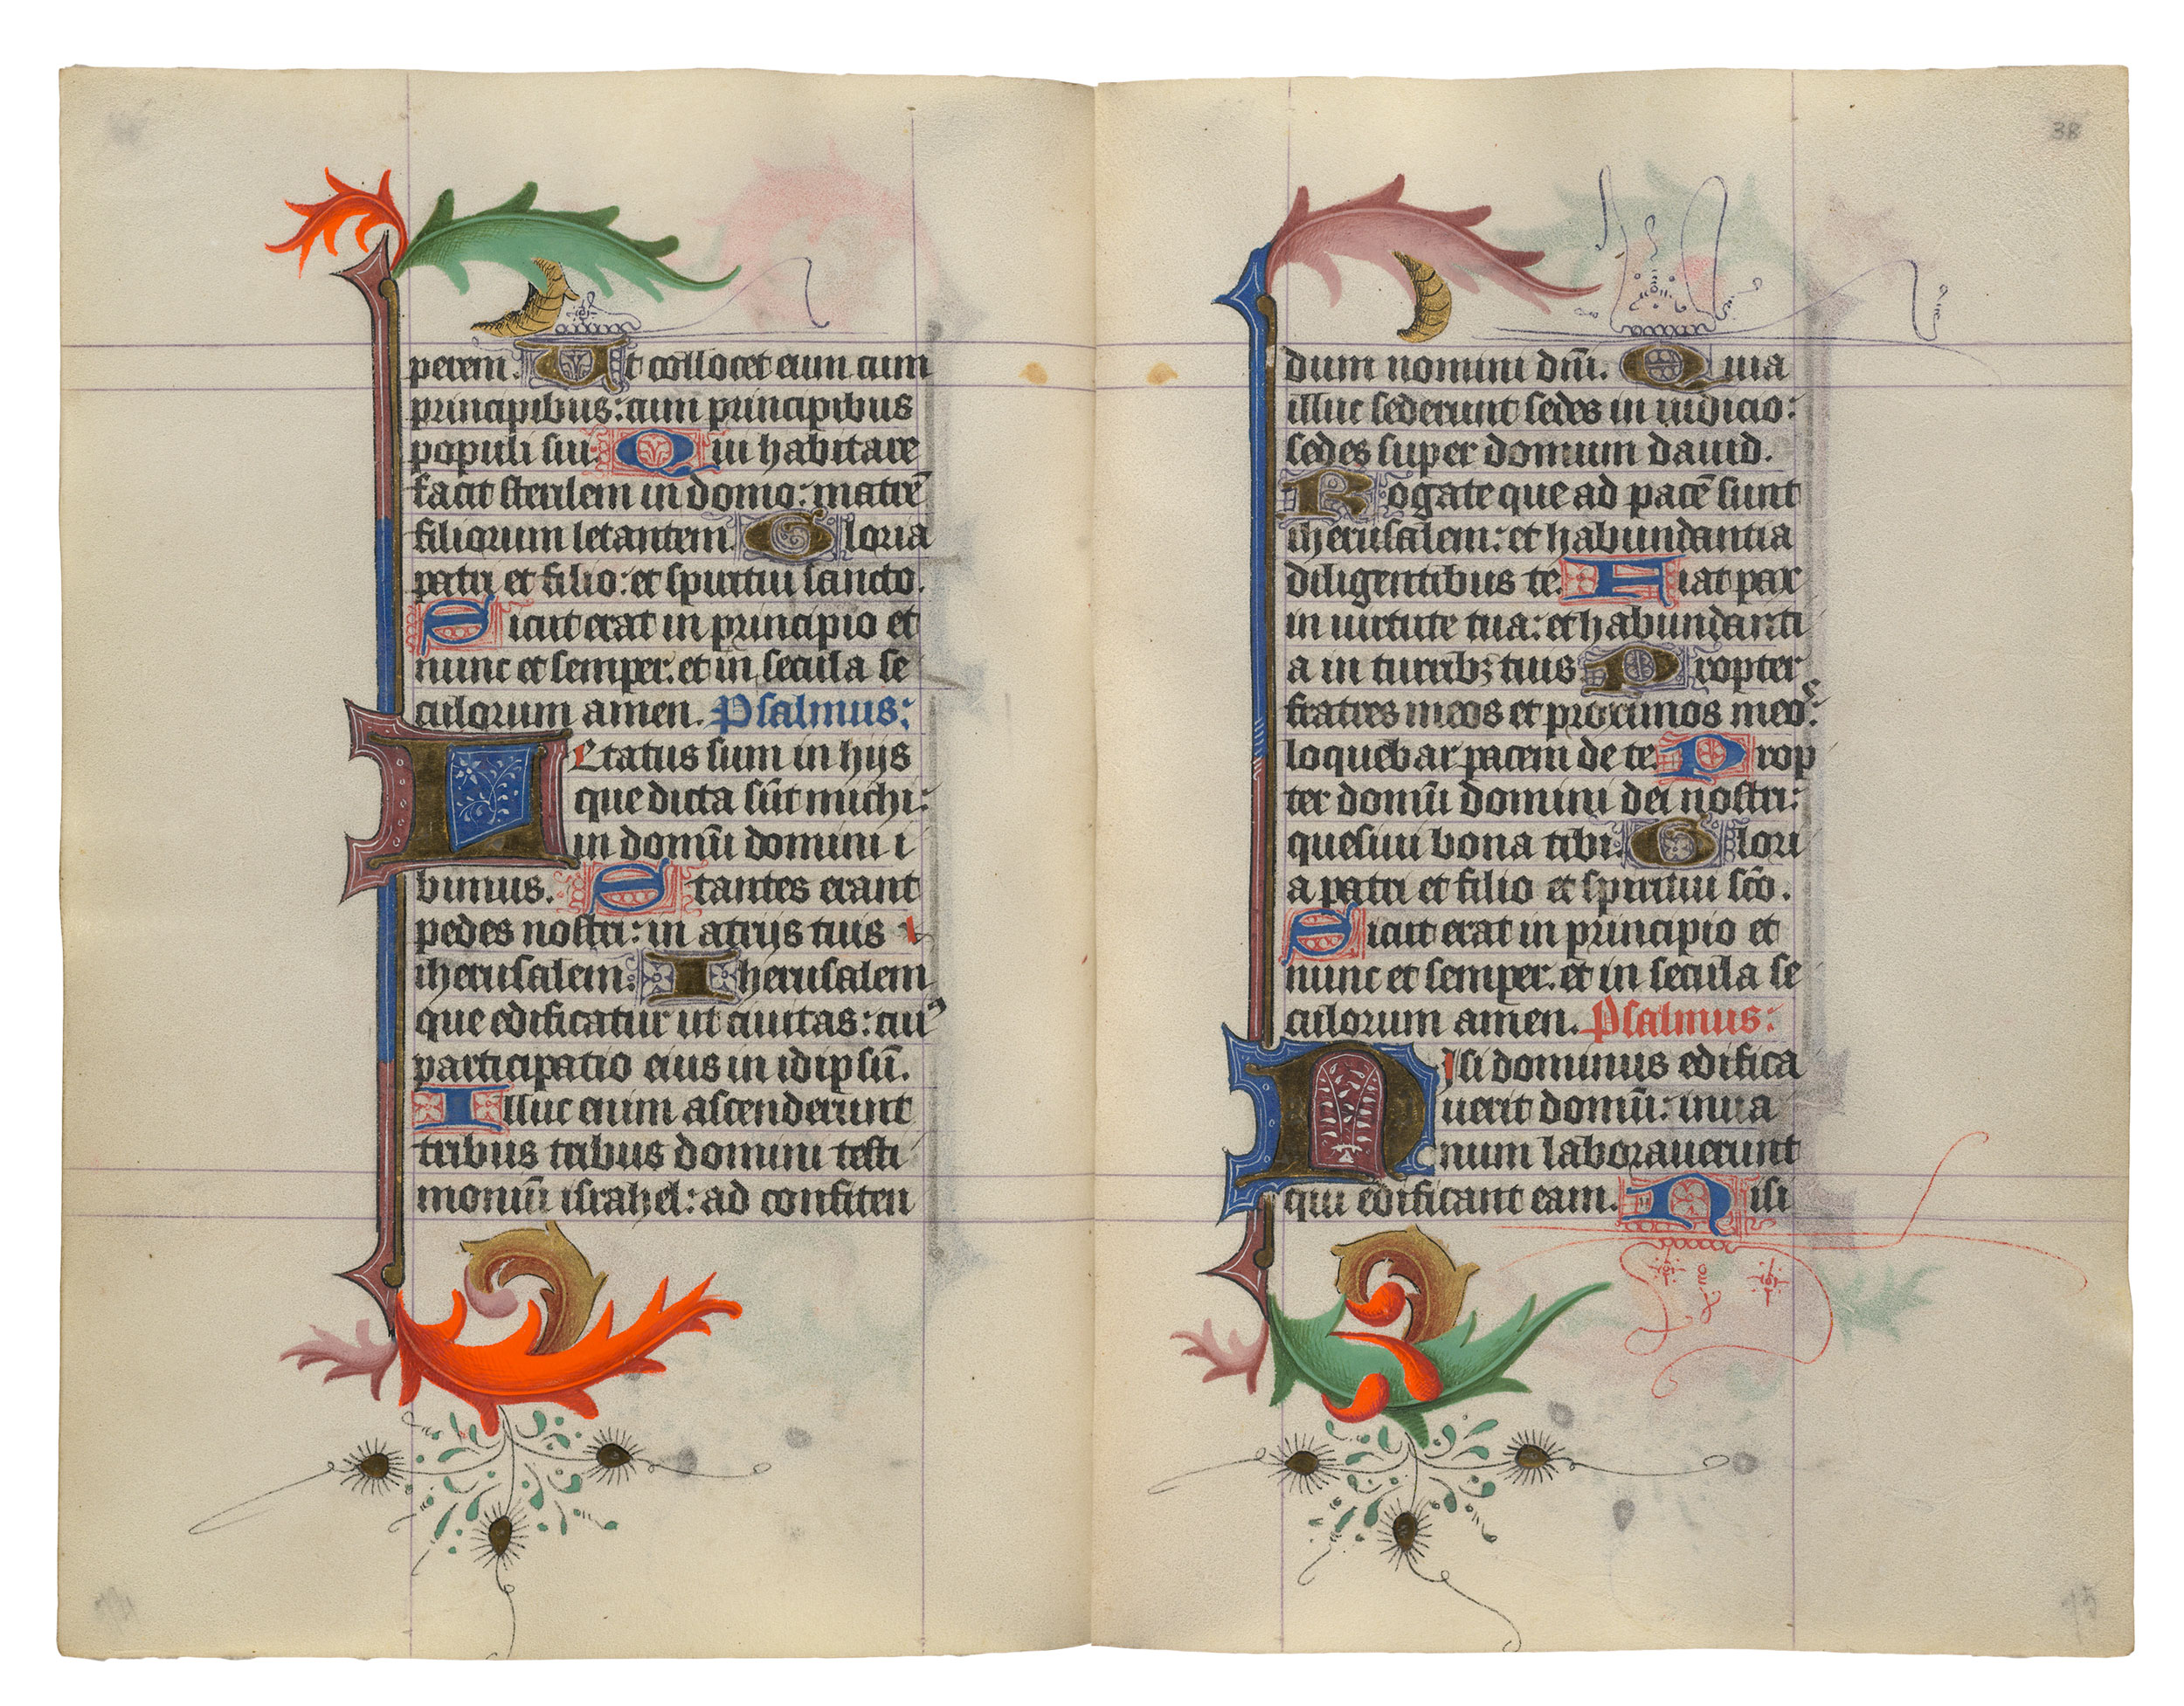 perem. Ut collocet eum cum
principibus: cum principibus
populi sui. Qui habitare
facit sterilem in domo: matrē
filiorum letantem. Gloria
patri et filio: et spiritui sancto.
Sicut erat in principio et
nunc et semper. et in secula se
culorum amen. Psalmus:
Letatus sum in hijs
que dicta sūt michi:
in domū domini i
bimus. Stantes erant
pedes nostri: in atrijs tuis
iherusalem: Iherusalem
que edificatur ut ciuitas: cuiꝰ
participatio eius in idipsū.
Illuc enim ascenderunt
tribus tribus domini testi
moniū israhel: ad confiten
38
dum nomini dn̄i. Quia
illuc sederunt sedes in iudicio:
sedes super domum dauid.
Rogate que ad pacē sunt
iherusalem: et habundantia
diligentibus te. Fiat pax
in uirtute tua: et habundanti
a in turribꝫ tuis. Propter
fratres meos et proximos meos:
loquebar pacem de te. Prop
ter domū domini dei nostri:
quesiui bona tibi. Glori
a patri et filio et spiritui sc̄o.
Sicut erat in principio et
nunc et semper. et in secula se
culorum amen. Psalmus:
Nisi dominus edifica
uerit domū: in ua
num laborauerunt
qui edificant eam. Nisi